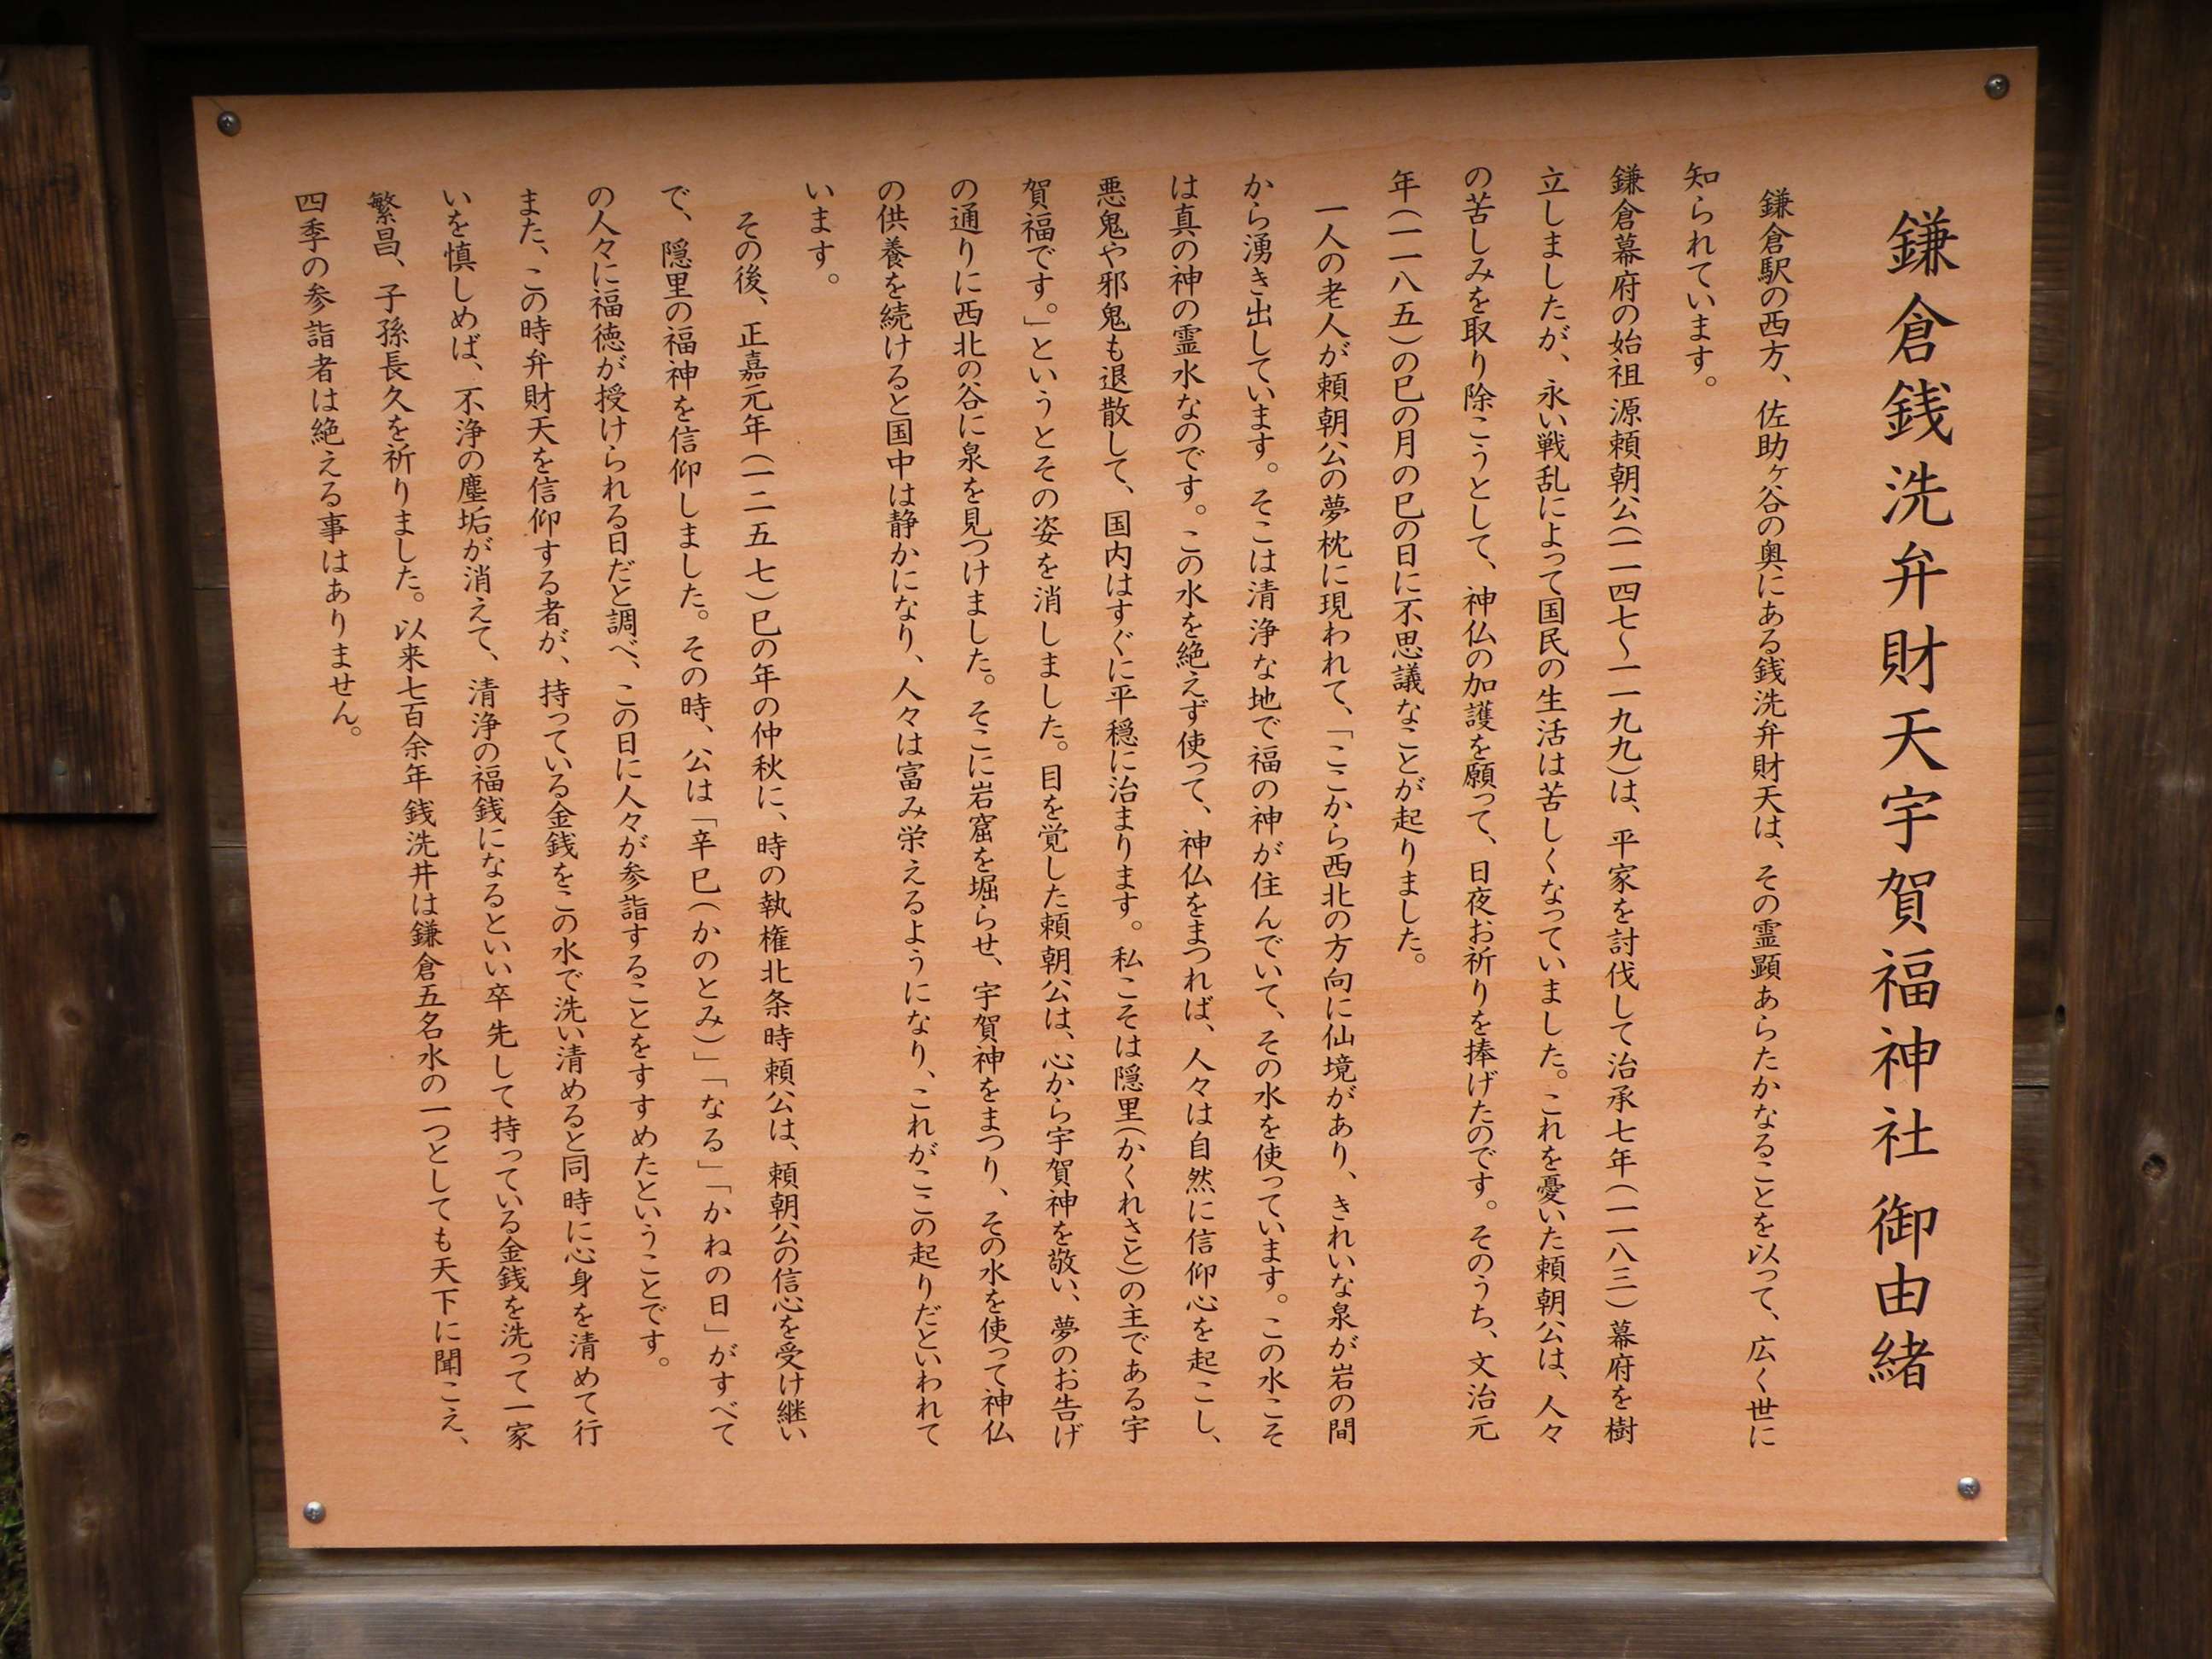 鎌倉銭洗弁財天宇賀福神社 御由緒
鎌倉駅の西方、佐助ヶ谷の奥にある銭洗弁財天は、その霊顕あらたかなることを以って、広く世に
知られています。
鎌倉幕府の始祖源頼朝公(一一四七〜一一九九)は、平家を討伐して治承七年(一一八三)幕府を樹
立しましたが、永い戦乱によって国民の生活は苦しくなっていました。これを憂いた頼朝公は、人々
の苦しみを取り除こうとして、神仏の加護を願って、日夜お祈りを捧げたのです。そのうち、文治元
年(一一八五)の巳の月の巳の日に不思議なことが起りました。
一人の老人が頼朝公の夢枕に現われて、「ここから西北の方向に仙境があり、きれいな泉が岩の間
から湧き出しています。そこは清浄な地で福の神が住んでいて、その水を使っています。この水こそ
は真の神の霊水なのです。この水を絶えず使って、神仏をまつれば、人々は自然に信仰心を起こし、
悪鬼や邪鬼も退散して、国内はすぐに平穏に治まります。私こそは隠里(かくれさと)の主である宇
賀福です。」というとその姿を消しました。目を覚した頼朝公は、心から宇賀神を敬い、夢のお告げ
の通りに西北の谷に泉を見つけました。そこに岩窟を堀らせ、宇賀神をまつり、その水を使って神仏
の供養を続けると国中は静かになり、人々は富み栄えるようになり、これがここの起りだといわれて
います。
その後、正嘉元年(一二五七)巳の年の仲秋に、時の執権北条時頼公は、頼朝公の信心を受け継い
で、隠里の福神を信仰しました。その時、公は「辛巳(かのとみ)」「なる」「かねの日」がすべて
の人々に福徳が授けられる日だと調べ、この日に人々が参詣することをすすめたということです。
また、この時弁財天を信仰する者が、持っている金銭をこの水で洗い清めると同時に心身を清めて行
いを慎しめば、不浄の塵垢が消えて、清浄の福銭になるといい卒先して持っている金銭を洗って一家
繁昌、子孫長久を祈りました。以来七百余年銭洗井は鎌倉五名水の一つとしても天下に聞こえ、
四季の参詣者は絶える事はありません。